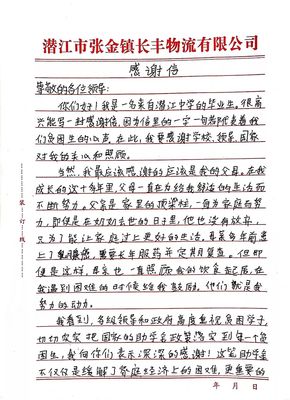 潜江市张金镇长丰物流有限公司
感谢信
尊敬的各位领导:
你们好!我是一名来自潜江中学的毕业生。很高
兴能写一封感谢信,因为信里的一字一句都代表着我
们贫困生的心声。在此,我要感谢学校、领导、国家
对我的关心和照顾。
当然,我最应该感谢的应该是我的父母。在我
成长的这十多年里,父母一直在为给我舒适的生活而
不断努力。父亲是家里的顶梁柱,一直为家庭而努
力,即使是在奶奶去世的日子里,他也没有放弃,
只为了能让家庭过上更好的生活。母亲多年前患
上了,需要长年服药并定期复查。但即
便是这样,母亲也一直照顾我的饮食起居,在
我遇到困难的时候给我鼓励。他们就是我
努力的动力。
我看到,各级领导和政府高度重视贫困学子,
切切实实把国家的助学政策落实到每一个贫
困生,我向你们表示深深的感谢!这笔助学金
不仅仅是缓解了家庭经济上的困难,更重要的
装订线
年 月 日